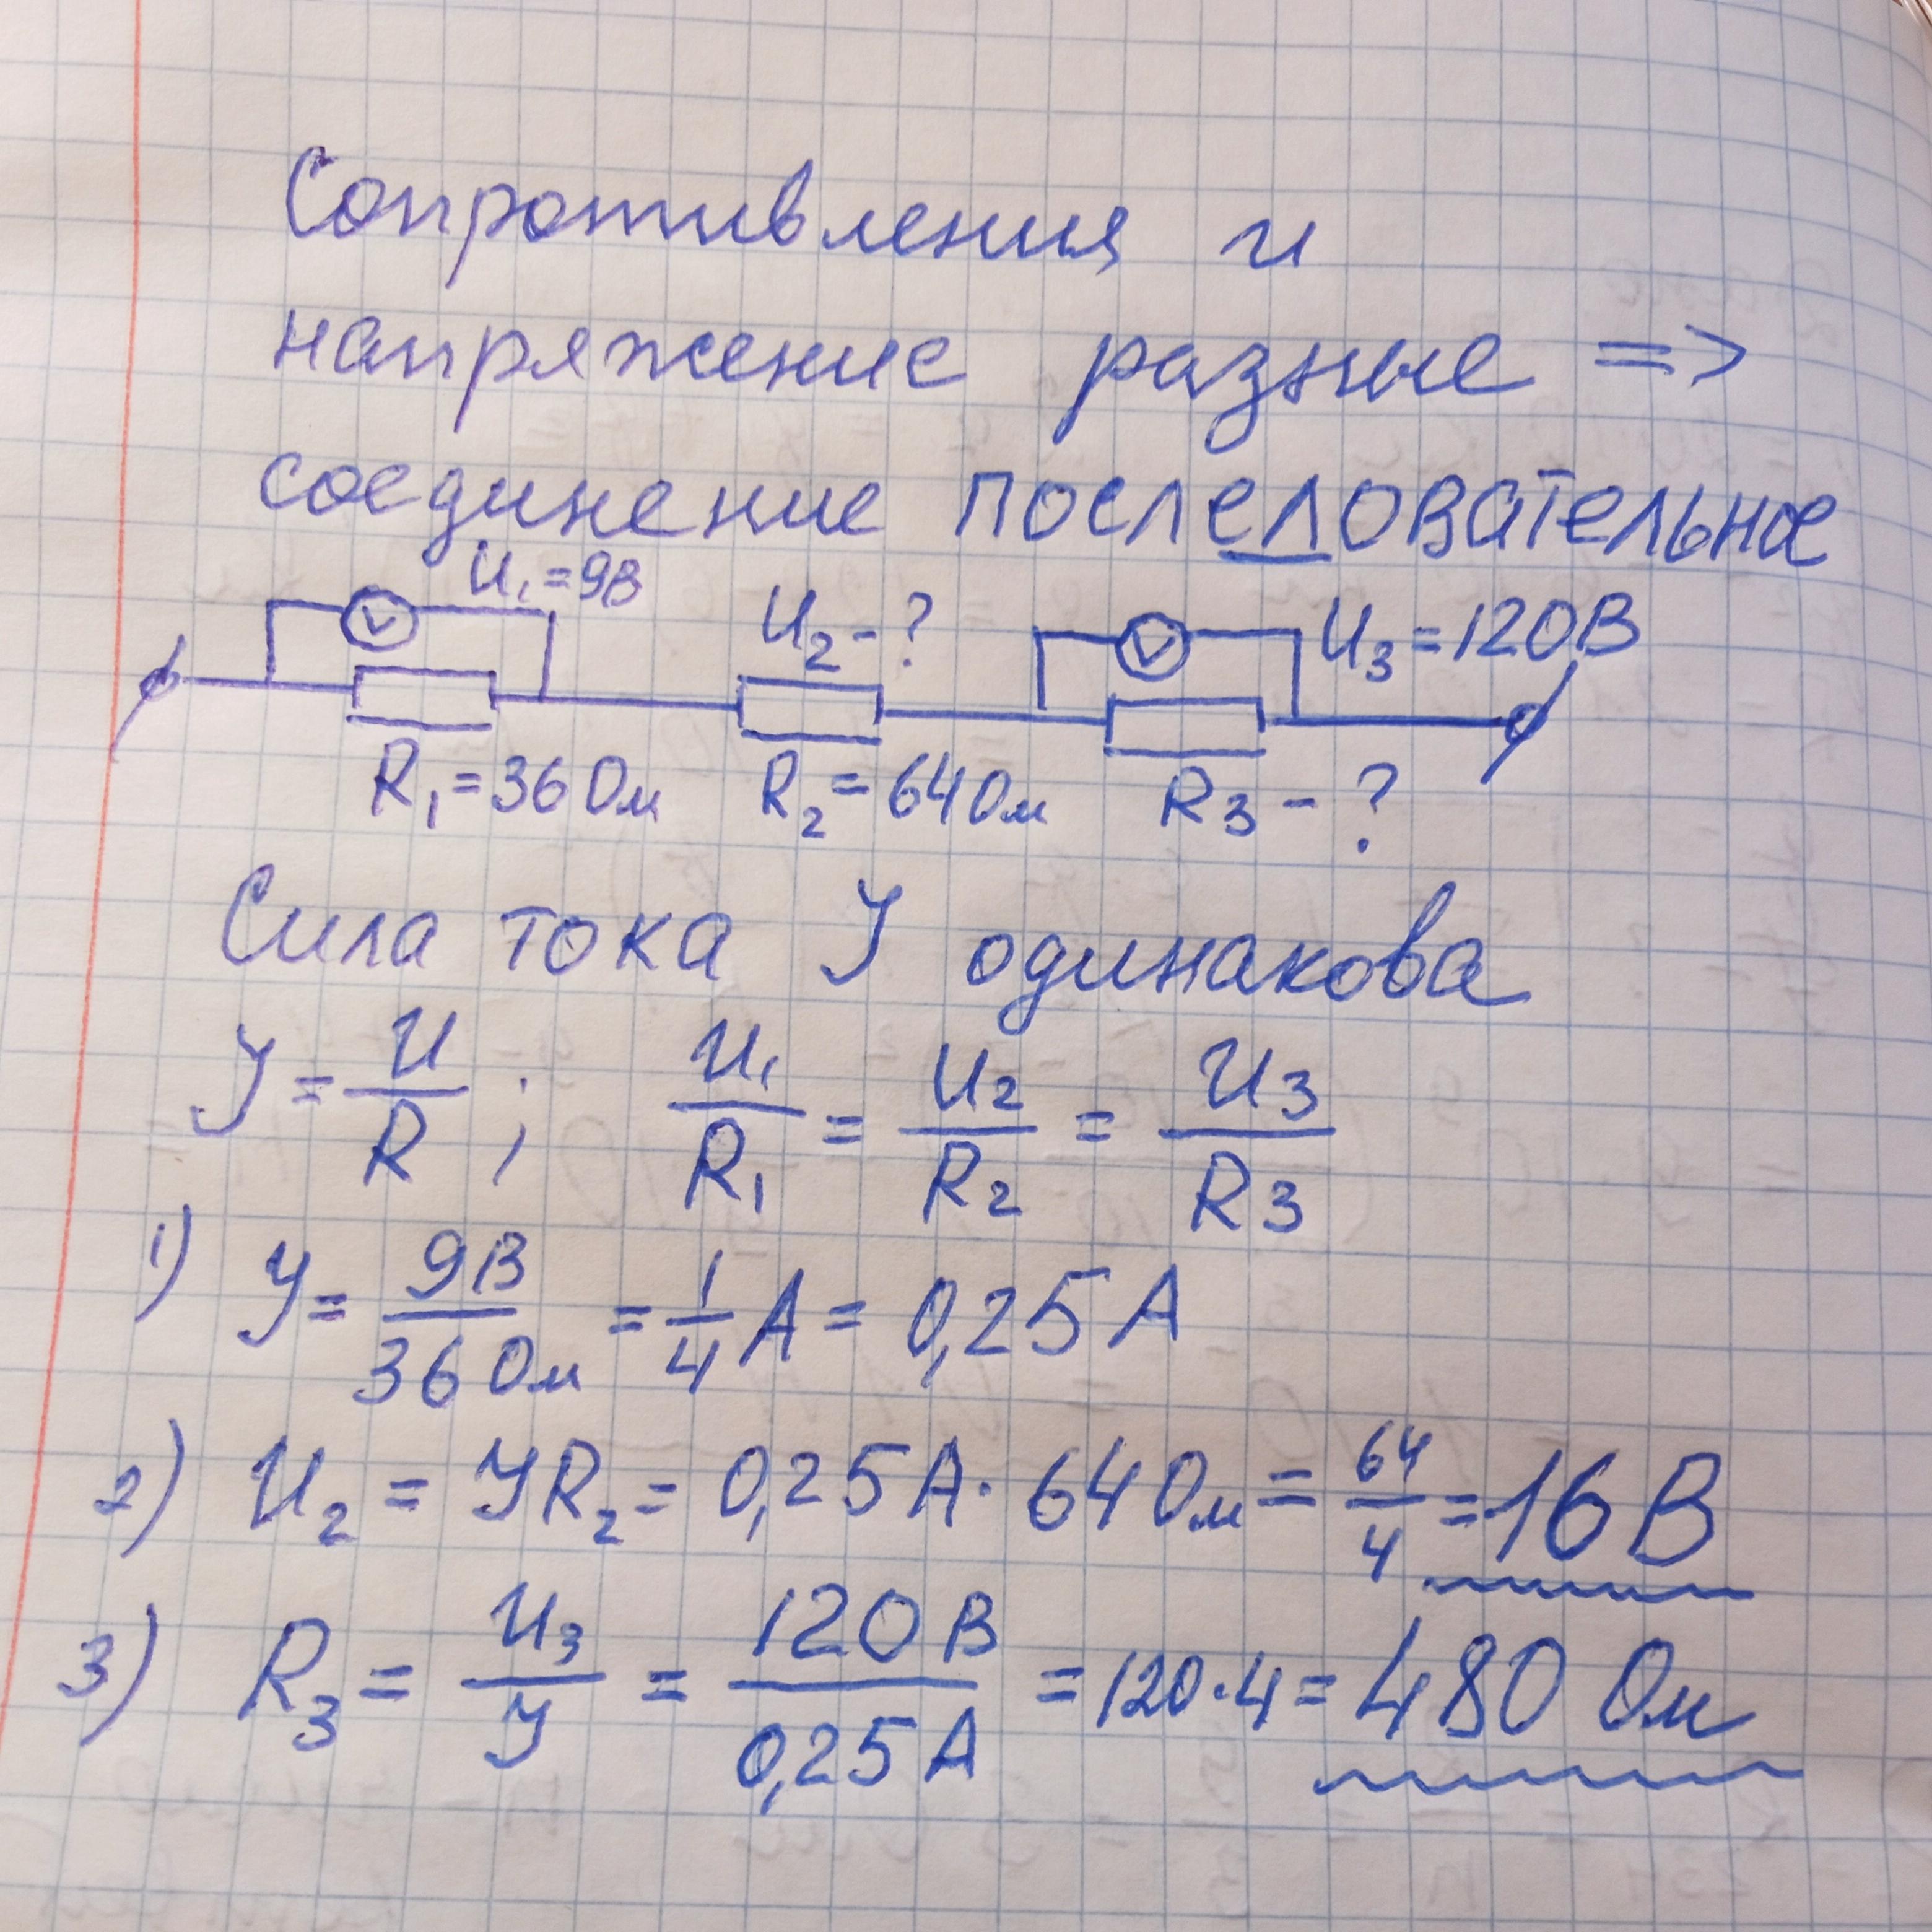 Сопротивления и
напряжение разные =>
соединение последовательное
U₁=9В
U₂-? U₃=120В
V V
R₁=36 Ом R₂=64 Ом R₃-?
Сила тока У одинакова
У = U/R ; U₁/R₁ = U₂/R₂ = U₃/R₃
1) У = 9В/36 Ом = 1/4 А = 0,25 А
2) U₂ = УR₂ = 0,25 А · 64 Ом = 64/4 = 16 В
3) R₃ = U₃/У = 120 В/0,25 А = 120·4 = 480 Ом